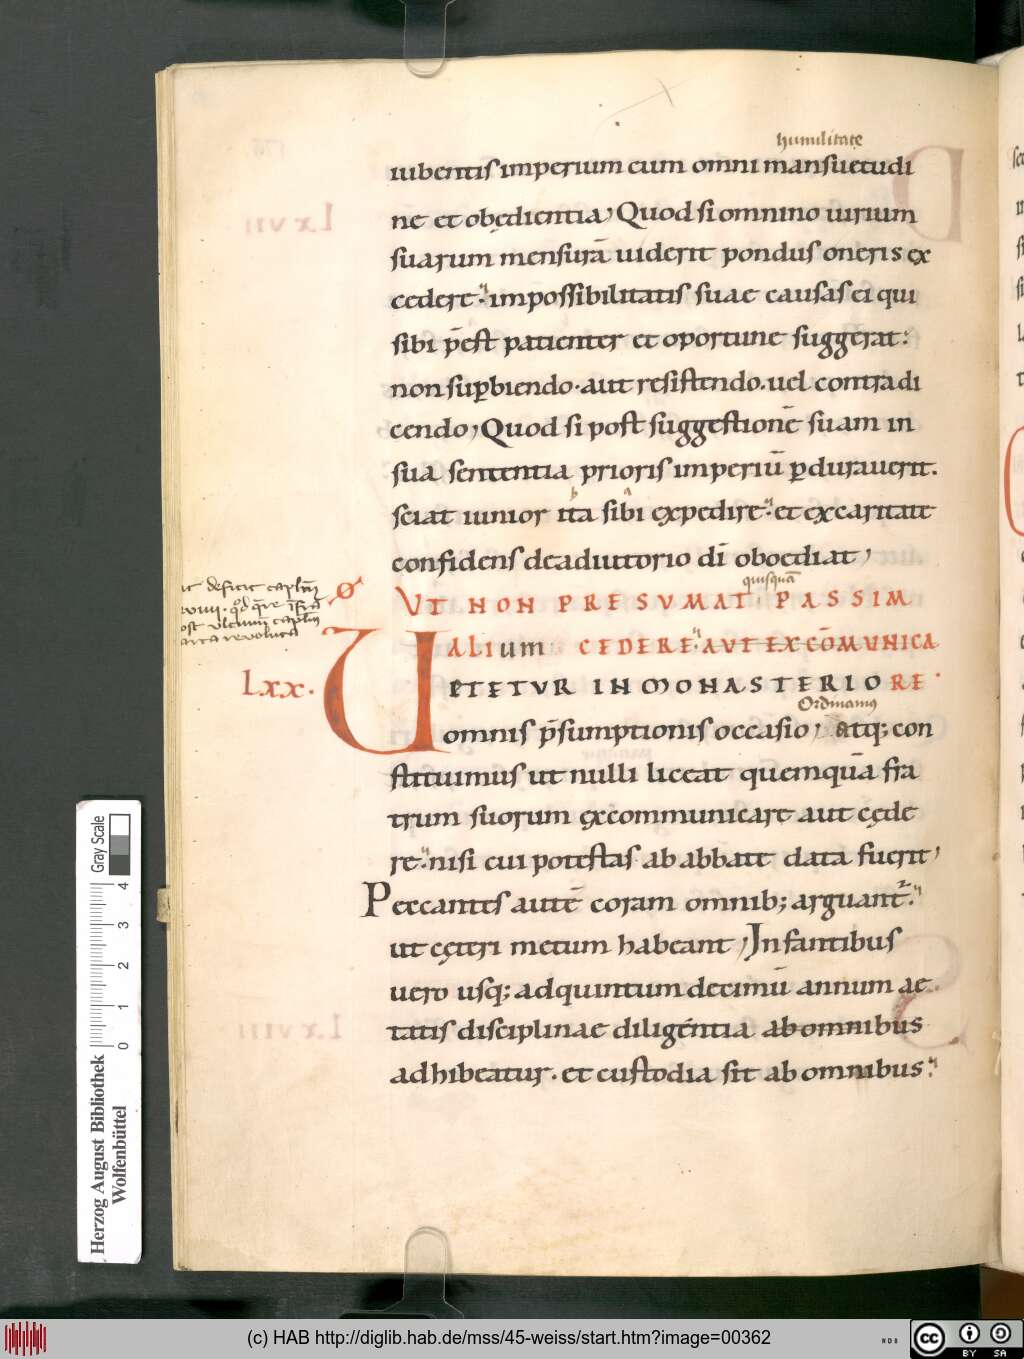 humilitatẹ
iubentis imperium cum omni mansuetudi
ne et obędientia, Quod si omnino uirium
suarum mensurā uiderit pondus oneris ex
cedere. impossibilitatis suae causas ei qui
sibi p̄est patienter et oportune suggerat.
non supbiendo. aut resistendo. uel contradi
cendo, Quod si post suggestionē suam in
sua sententia prioris imperiū pdurauerit.
sciat iunior ita sibi expedire. et ex caritate
confidens de adiutorio dī oboediat,
quisquā
VT NON PRESVMAT PASSIM
ALIum CEDERE. AVT EXCōMVNICA
RE.
LXX.
UETETVR IN MONASTERIO
Ordinamus
omnis p̄sumptionis occasio, atq; con
stituimus ut nulli liceat quemquā fra
trum suorum excommunicare aut cęde
re. nisi cui potestas ab abbate data fuerit,
Peccantes autē coram omnib; arguant.
ut cęteri metum habeant, Infantibus
uero usq; ad quintum decimū annum ae
tatis disciplinae diligentia ab omnibus
adhibeatur. et custodia sit ab omnibus.
Gray Scale
0 1 2 3 4
Herzog August Bibliothek
Wolfenbüttel
(c) HAB http://diglib.hab.de/mss/45-weiss/start.htm?image=00362
cc BY SA